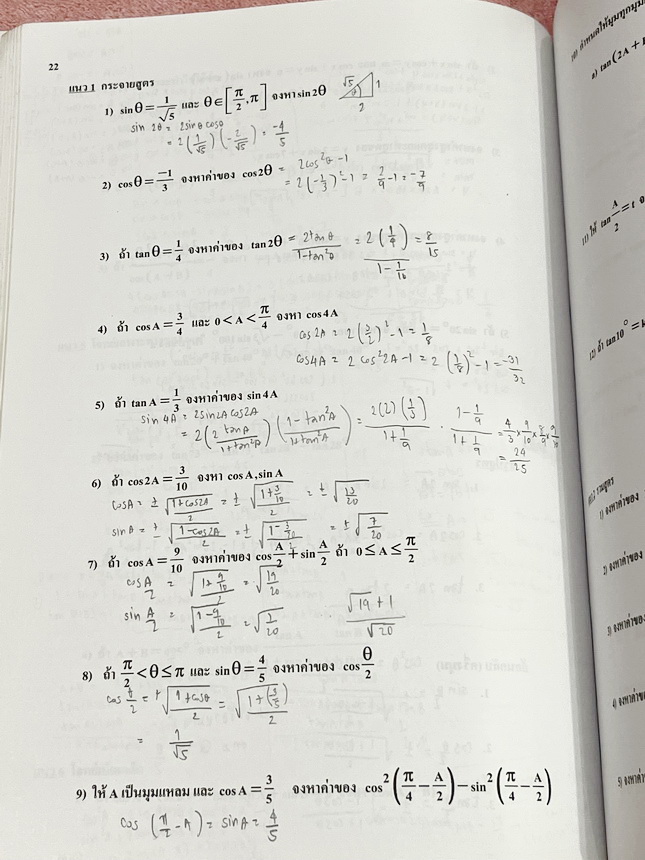 22
แนว 1 กระจายสูตร
1) sinθ = 1/√5 และ θ∈[π/2, π] จงหา sin2θ
√5 θ 1 2
sin 2θ = 2sinθ cosθ
= 2(1/√5)(-2/√5) = -4/5
2) cosθ = -1/3 จงหาค่าของ cos2θ = 2cos²θ -1
= 2(-1/3)² -1 = 2/9 -1 = -7/9
3) ถ้า tanθ = 1/4 จงหาค่าของ tan2θ = 2tanθ/1-tan²θ = 2(1/4)/1-1/16 = 8/15
4) ถ้า cosA = 3/4 และ 0 < A < π/4 จงหา cos4A
cos2A = 2(3/2)² -1 = 1/8
cos4A = 2cos²2A -1 = 2(1/8)² -1 = -31/32
5) ถ้า tanA = 1/3 จงหาค่าของ sin4A
sin 4A = 2sin2A cos2A
= 2(2 tanA/1+tan²A)(1-tan²A/1+tan²A) = 2(2)(1/3)/1+1/9 · 1-1/9/1+1/9 = 4/3 × 9/10 × 8/9 × 9/10
= 24/25
6) ถ้า cos2A = 3/10 จงหา cosA, sinA
cosA = ± √1+cos2A/2 = ± √1+3/10/2 = ± √13/20
sinA = ± √1-cos2A/2 = ± √1-3/10/2 = ± √7/20
7) ถ้า cosA = 9/10 จงหาค่าของ cos A/2 + sin A/2 ถ้า 0 ≤ A ≤ π/2
cos A/2 = √1+9/10/2 = √19/20
sin A/2 = √1-9/10/2 = √1/20 √19 + 1/√20
8) ถ้า π/2 < θ ≤ π และ sinθ = 4/5 จงหาค่าของ cos θ/2
cos θ/2 = + √1+cosθ/2 = √1+(3/5)/2
= 1/√5
9) ให้ A เป็นมุมแหลม และ cosA = 3/5 จงหาค่าของ cos²(π/4 - A/2) - sin²(π/4 - A/2)
cos (π/2 - A) = sinA = 4/5
a) tan(2A +
tan A/2 = t
tan10° =
1) จงหาค่าของ
2) จงหาค่าของ
3) จงหาค่าของ
4) จงหาค่าของ
5) จงหาค่า